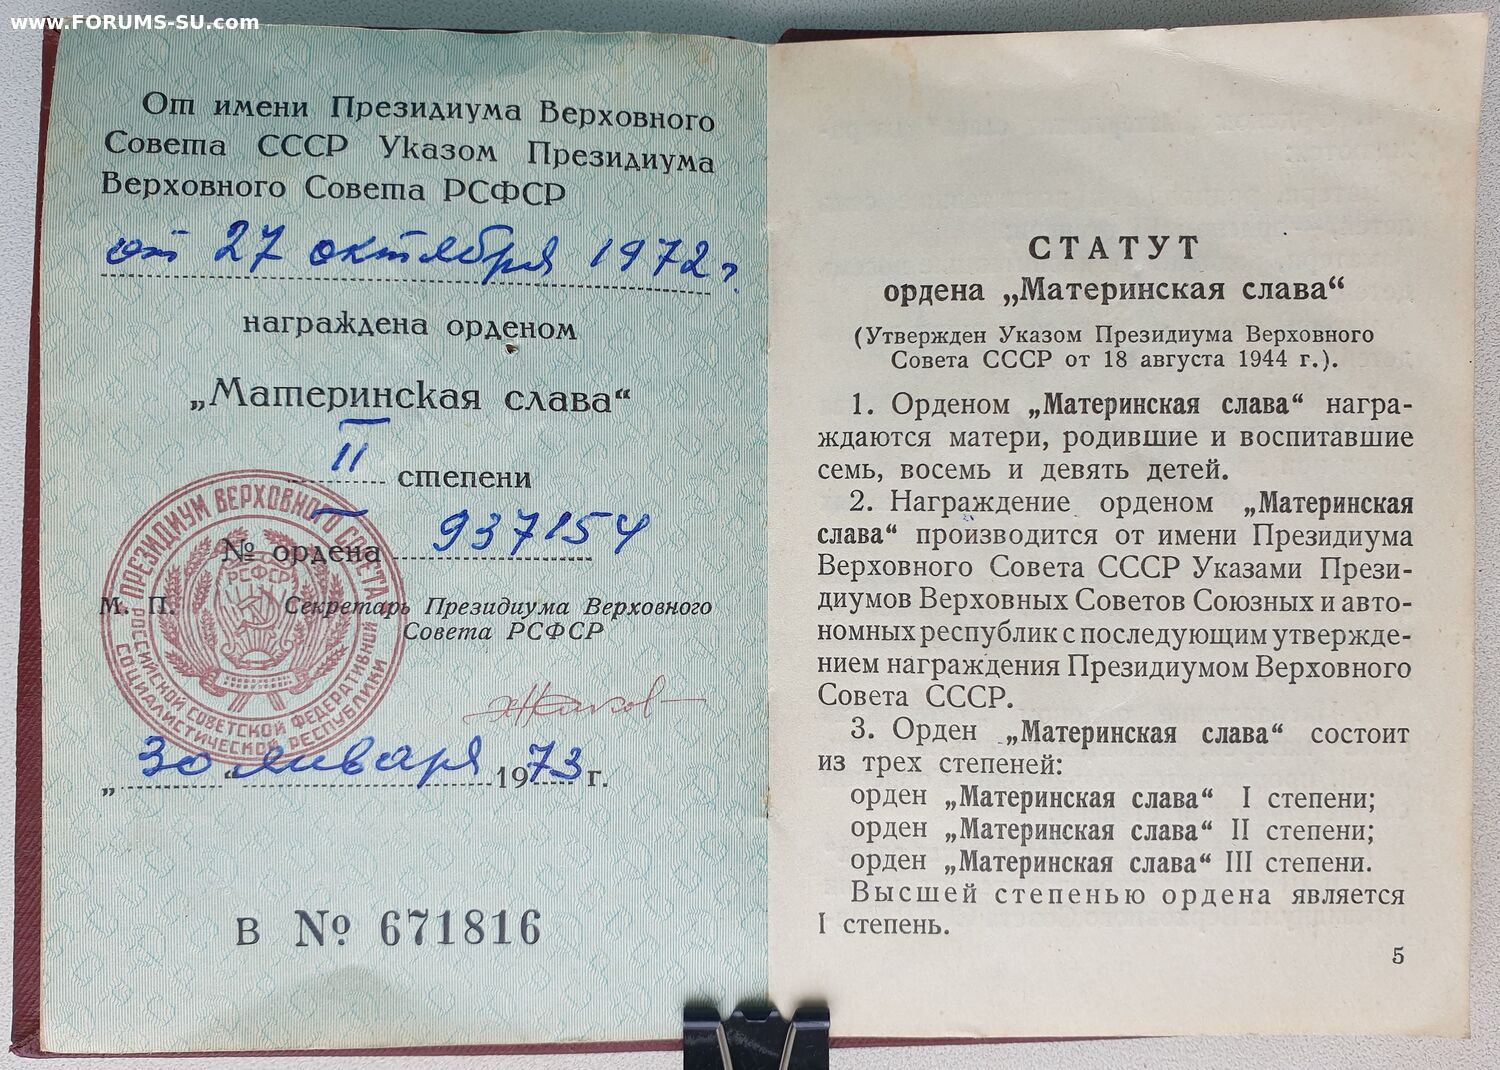 www.FORUMS-SU.com
От имени Президиума Верховного
Совета СССР Указом Президиума
Верховного Совета РСФСР
от 27 октября 1972 г.
награждена орденом
„Материнская слава“
II степени
№ ордена 937154
М. П. Секретарь Президиума Верховного
Совета РСФСР
ПРЕЗИДИУМ ВЕРХОВНОГО СОВЕТА
РОССИЙСКОЙ СОВЕТСКОЙ ФЕДЕРАТИВНОЙ
СОЦИАЛИСТИЧЕСКОЙ РЕСПУБЛИКИ
РСФСР
„30“ января 1973 г.
В № 671816
СТАТУТ
ордена „Материнская слава“
(Утвержден Указом Президиума Верховного
Совета СССР от 18 августа 1944 г.).
1. Орденом „Материнская слава“ награ-
ждаются матери, родившие и воспитавшие
семь, восемь и девять детей.
2. Награждение орденом „Материнская
слава“ производится от имени Президиума
Верховного Совета СССР Указами Прези-
диумов Верховных Советов Союзных и авто-
номных республик с последующим утвержде-
нием награждения Президиумом Верховного
Совета СССР.
3. Орден „Материнская слава“ состоит
из трех степеней:
орден „Материнская слава“ I степени;
орден „Материнская слава“ II степени;
орден „Материнская слава“ III степени.
Высшей степенью ордена является
I степень.
5